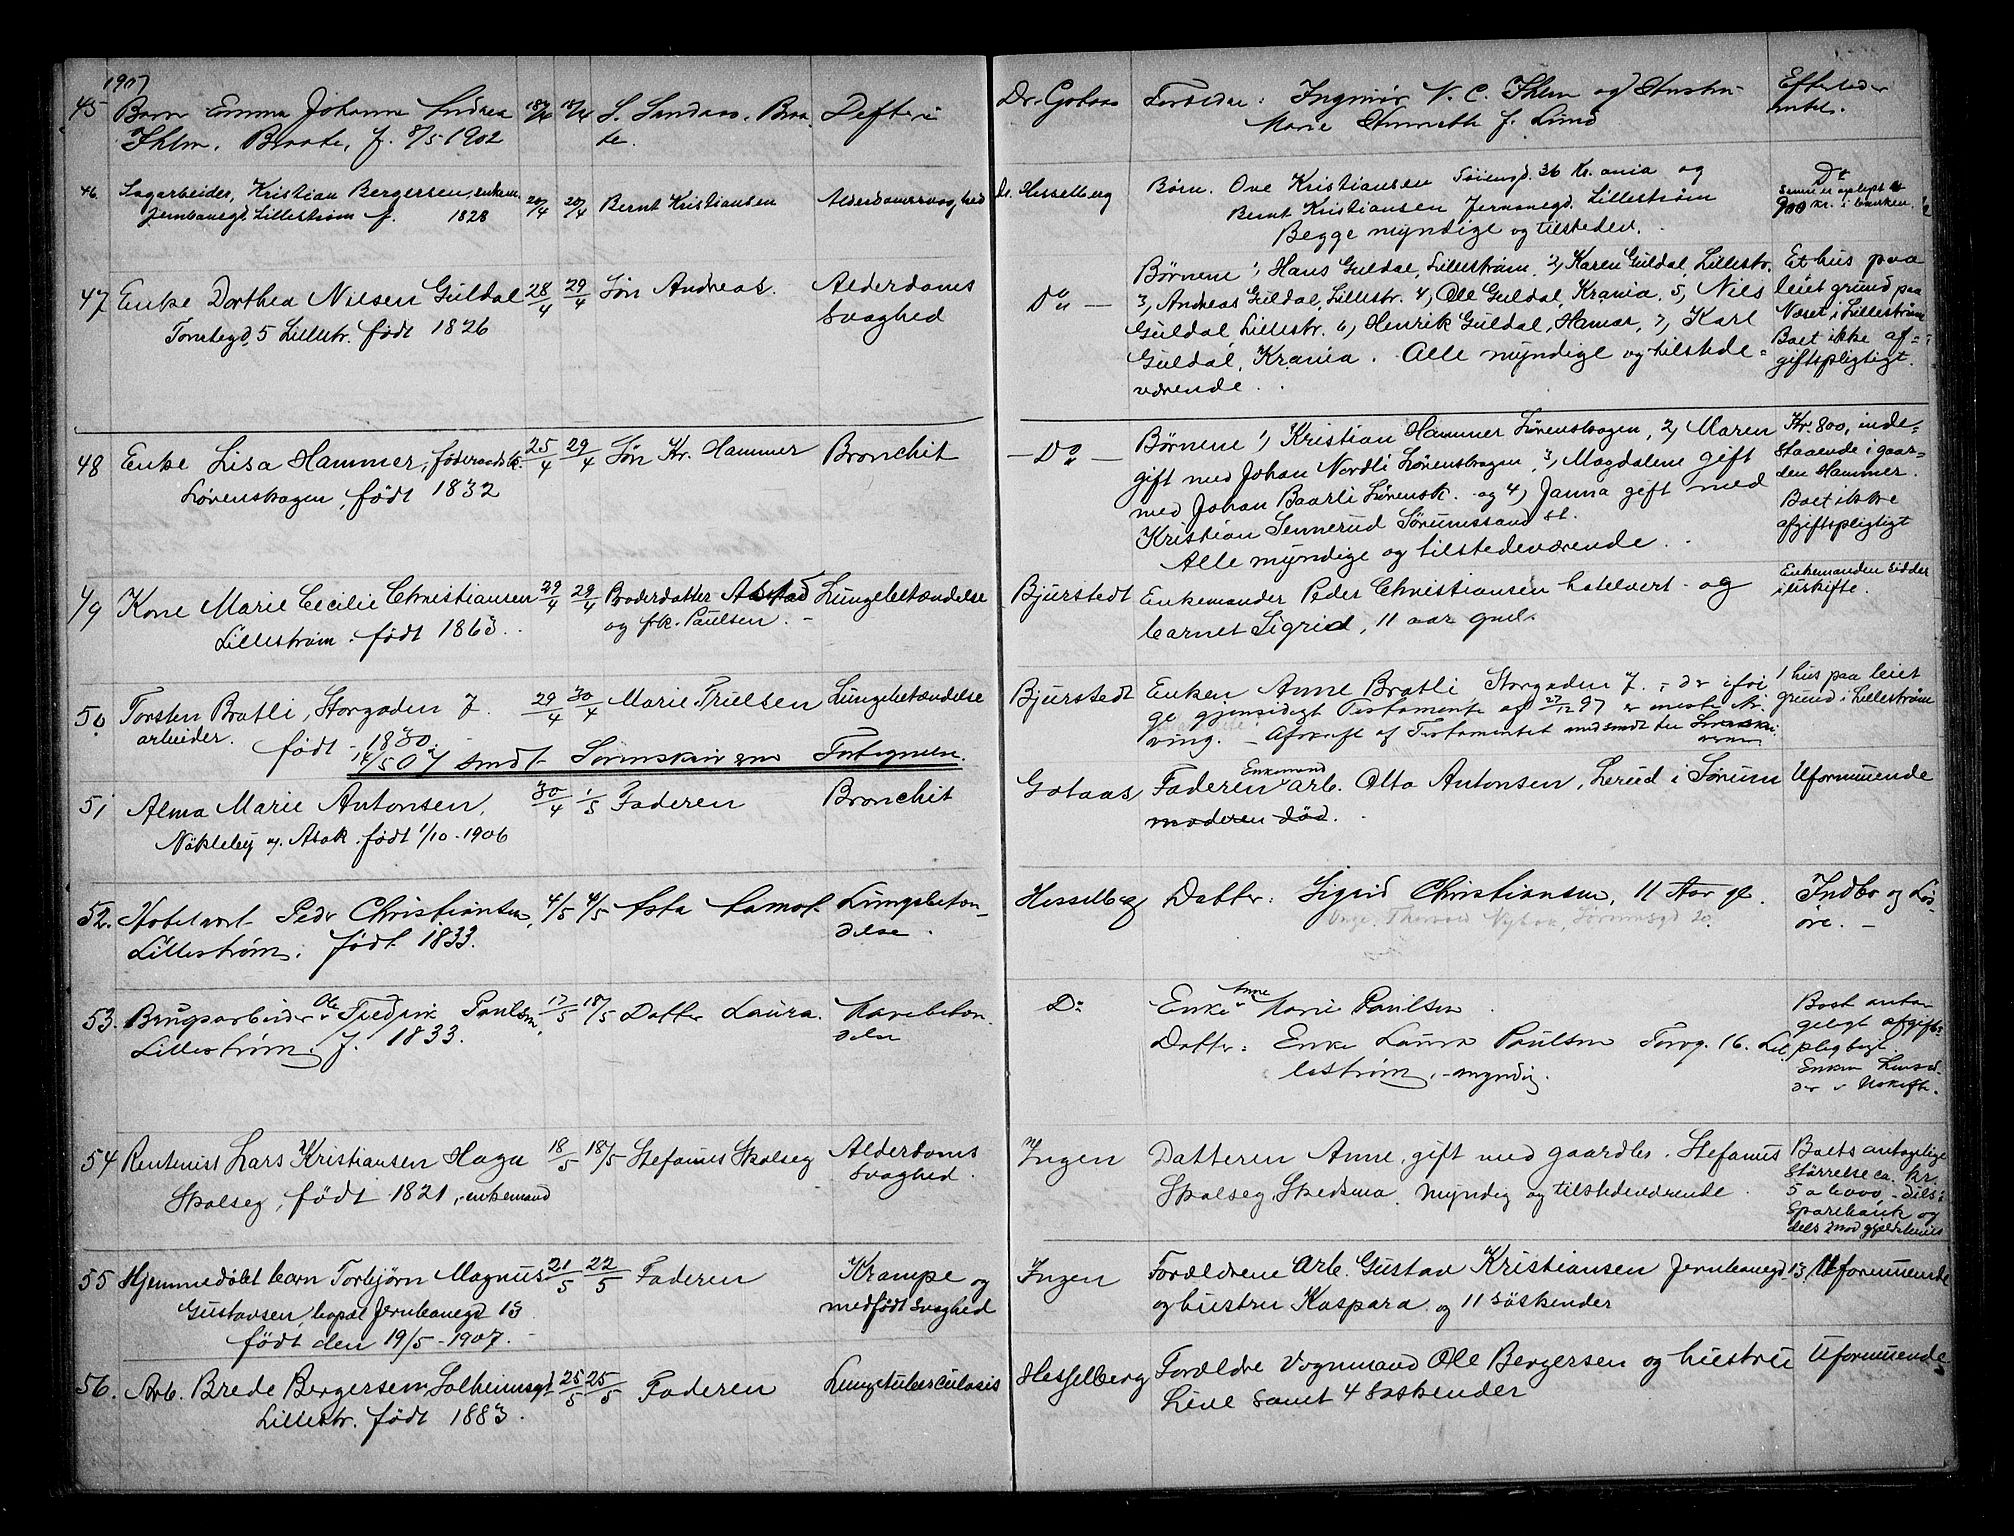 1907
45 Barn Emma Johanne Andrea 18/4 18/4 S. Sandaas, Braa- Defteri Dr. Gotaas Forældre: Ingeniør N. C. Ihlm og Hustru Efterlader
Ihlm. Braate, f. 8/5 1902 te. Marie f. Lund intet.
46 Sagarbeider, Kristian Bergersen, enkem. 20/4 20/4 Bernt Kristiansen Alderdomssvaghed Dr. Hesselberg Børn. Ove Kristiansen Tøiengd. 36 Kr.ania og Do
Jernbanegd. Lillestrøm f. 1828 Bernt Kristiansen Jernbanegd. Lillestrøm 900 kr. i banken.
Begge myndige og tilstede.
47 Enke Dorthea Nilsen Guldal 28/4 29/4 Søn Andreas. Alderdoms Do — Børnene 1, Hans Guldal, Lillestrøm, 2, Karen Guldal, Lillestr. Et hus paa
Torvegd, 5 Lillestr. født 1826 svaghed 3, Andreas Guldal, Lillestr. 4, Ole Guldal, Krania. 5, Nils leiet grund paa
Guldal, Lillestr. 6, Henrik Guldal, Hamar, 7, Karl Næset i Lillestrøm
Guldal, Krania. Alle myndige og tilstede= Boet ikke af=
værende. giftspligtigt.
48 Enke Lisa Hammer, føderaadsk. 25/4 29/4 Søn Kr. Hammer Bronchit — Do — Børnene 1, Kristian Hammer Lørenskogen, 2, Maren Kr. 800, inde=
Lørenskogen, født 1832 gift med Johan Nordli Lørenskogen, 3, Magdalene gift staaende i gaar=
med Johan Baarli Lørensk. og 4, Janna gift med den Hammer.
Kristian Sennerud Sørumssand st. Boet ikke
Alle myndige og tilstedeværende. afgiftspligtigt
49 Kone Marie Cecilie Christiansen 29/4 29/4 Broderdatter Aastad Lungebetændelse Bjurstedt Enkemanden Peder Christiansen hotelvert og Enkemanden sidder
Lillestrøm. født 1863. og frk. Paulsen. barnet Sigrid, 11 aar gml. i uskifte.
50 Torsten Bratli, Storgaden 7. 29/4 30/4 Marie Trulsen Lungebetændelse Bjurstedt Enken Anne Bratli Storgaden 7. 1 hus paa leiet
arbeider. født 1830. ge gjensidigt Testamente af 27/12 97 er eneste Ar- grund i Lillestrøm
14/5 07 sendt Sørenskriveren Fortegnelse. ving. – Afskrift af Testamentet medsendt til Sørenskri-
veren
51 Alma Marie Antonsen, 30/4 1/5 Faderen Bronchit Gotaas Faderen Enkemand arb. Otto Antonsen, Lerud i Sørum Uformuende
Nökleby v. Asak. født 1/10 - 1906 moderen død.
52. Hotelvert Peder Christiansen, 4/5 4/5 Asta Aamot. Lungebetæn- Hesselberg Datter: Sigrid Christiansen, 11 Aar gl. Indbo og Løs-
Lillestrøm. født 1833. delse. øre. –
53. Brugsarbeider Ole Fredrik Paulsen. 17/5 18/5 Datter Laura. Mavebetæn- Do Enke Anne Marie Paulsen. Boet anta-
Lillestrøm. f. 1833. delse Datter: Enke Laura Paulsen Torvg. 16. Lil- geligt afgifts=
lestrøm, – myndig. pligtigt.
Enken hensid-
der i Uskifte.
54 Rentenist Lars Kristiansen Haga 18/5 18/5 Stefanus Skolseg Alderdoms Ingen Datteren Anne, gift med gaardbr. Stefanus Boets antagelige
Skolseg, født 1821, enkemand svaghed. Skolseg Skedsmo, myndig og tilstedeværende. Størrelse ca. kr.
5 a 6000, – dels i
Sparebank og
dels mod gjældsbevis
55 Hjemmedøbt barn Torbjørn Magnus 21/5 22/5 Faderen Krampe og Ingen Forældrene Arb. Gustav Kristiansen Jernbanegd. 13 Uformuende
Gustavsen, bopæl Jernbanegd 13 medfødt svaghed og hustru Kaspara og 11 søskender
født den 19/5 - 1907.
56. Arb. Brede Bergersen, Solheimsgd 25/5 25/5 Faderen Lungetuberculosis Hesselberg Forældre Vognmand Ole Bergersen og hustru Uformuende
Lillestr. født 1883. Line samt 4 søskender